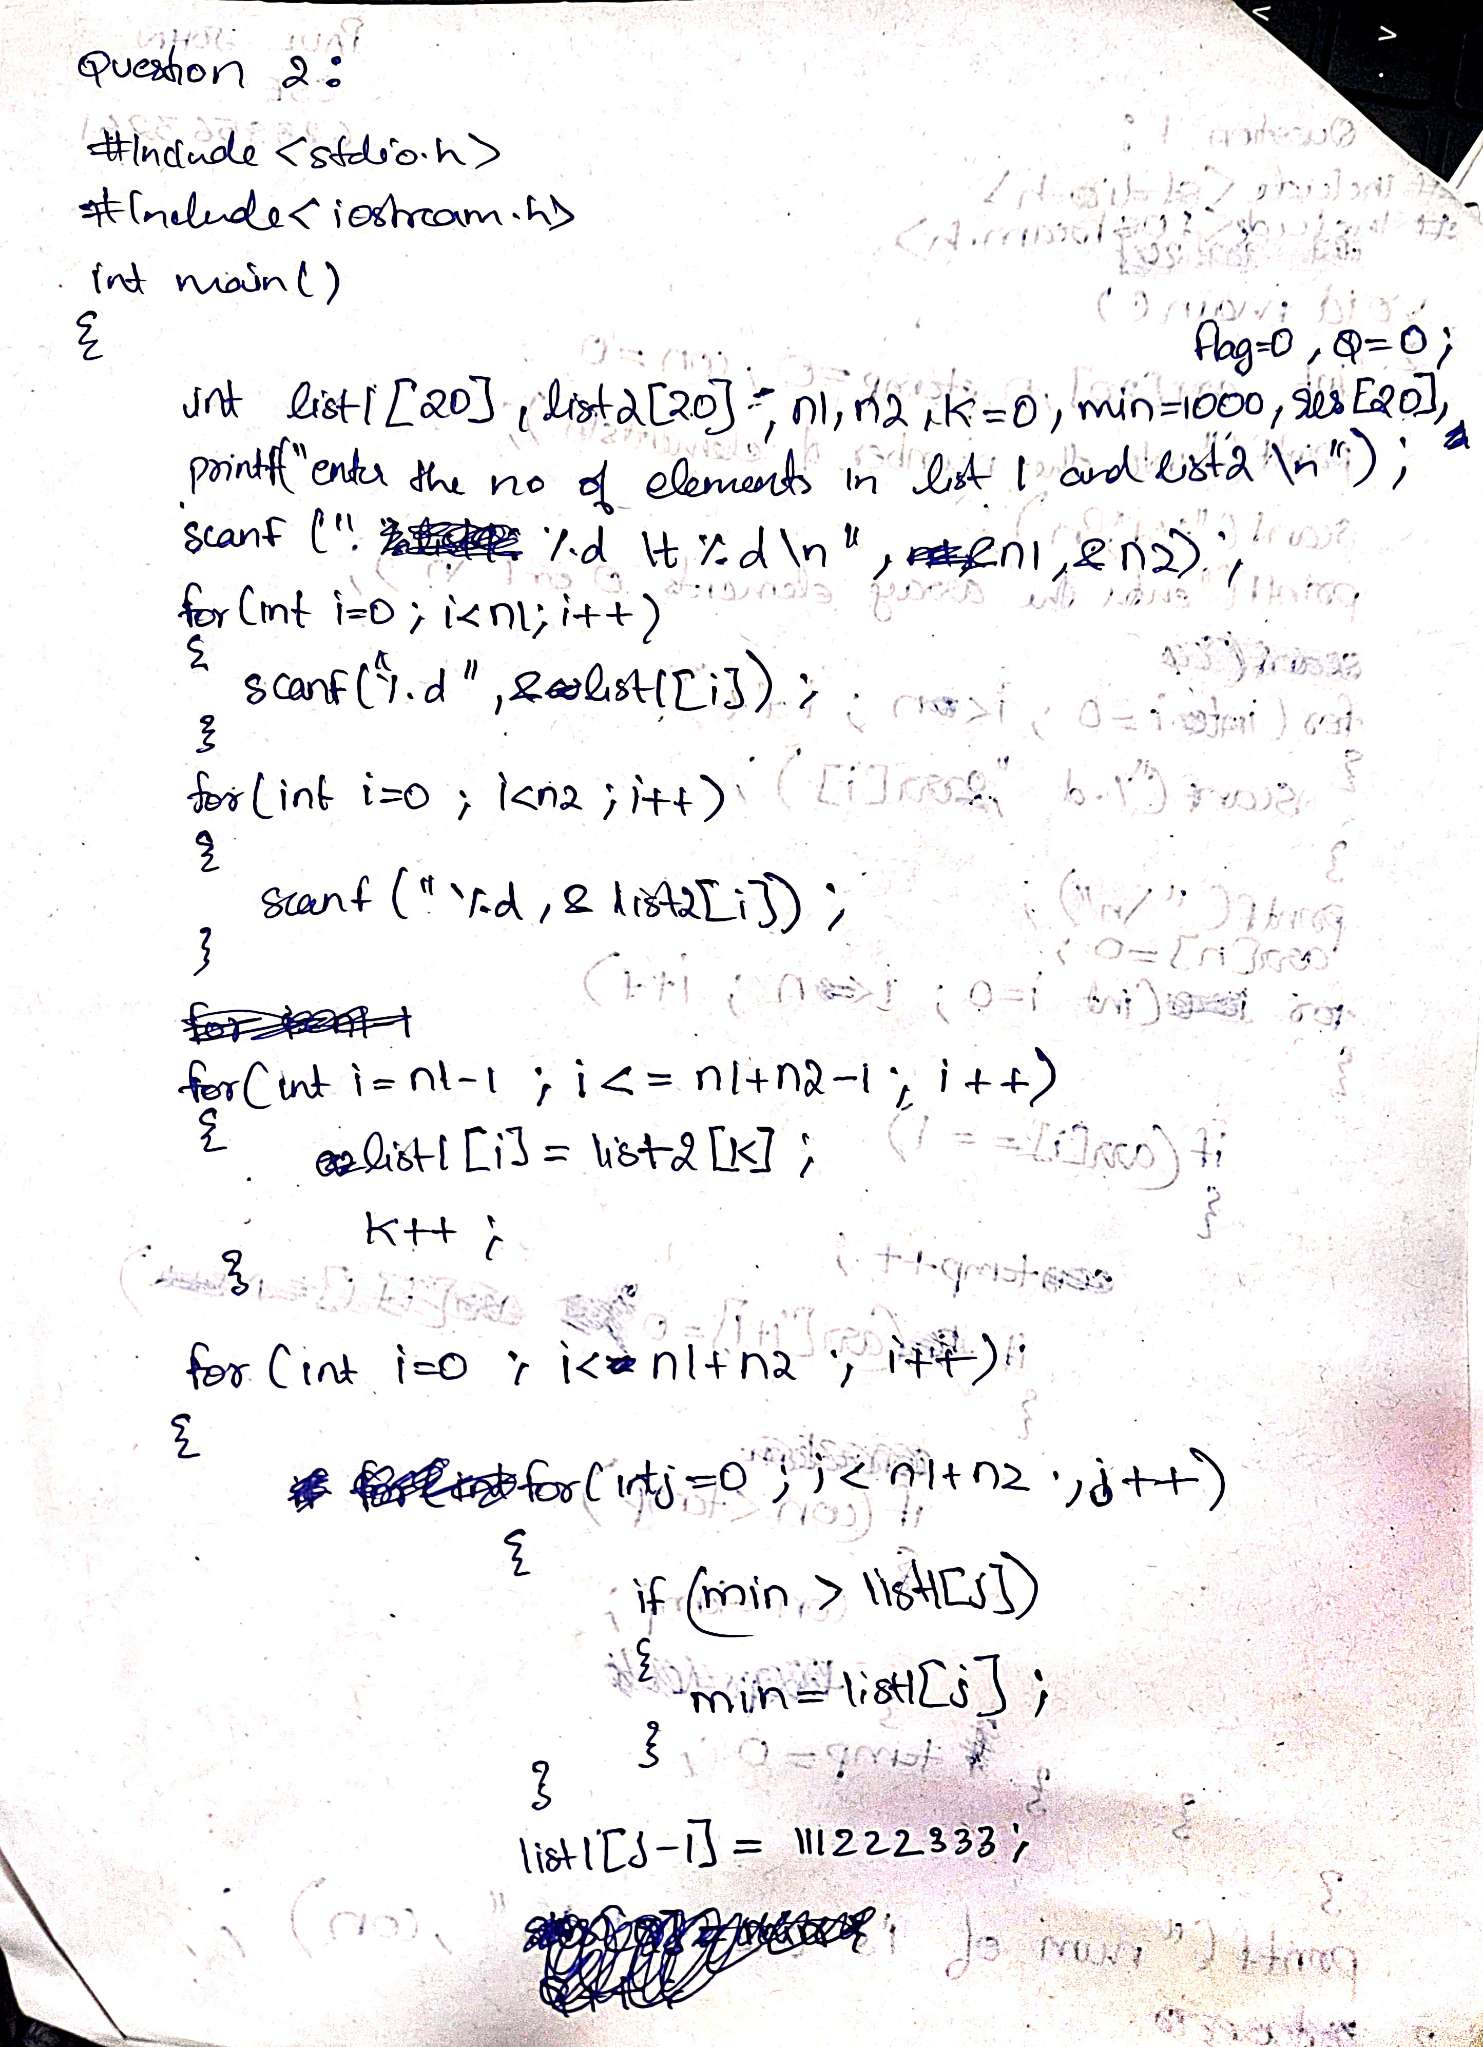 Question 2:
#Include <stdio.h>
#Include<iostream.h>
int main()
{
flag=0, Q=0;
int list1[20], list2[20], n1, n2, K=0, min=1000, res[20],
printf("enter the no of elements in list 1 and list2 \n");
scanf ("%d \t %d \n", &n1, &n2);
for(int i=0; i<n1; i++)
{
scanf("%d", &list1[i]);
}
for(int i=0; i<n2; i++)
{
scanf ("%d, & list2[i]);
}
for(int i=n1-1; i<=n1+n2-1; i++)
{
list1[i] = list2[K];
K++;
}
for(int i=0; i<n1+n2; i++)
{
for(int j=0; j<n1+n2; j++)
{
if (min > list1[j])
{
min = list1[j];
}
}
list1[j-1] = 111222333;